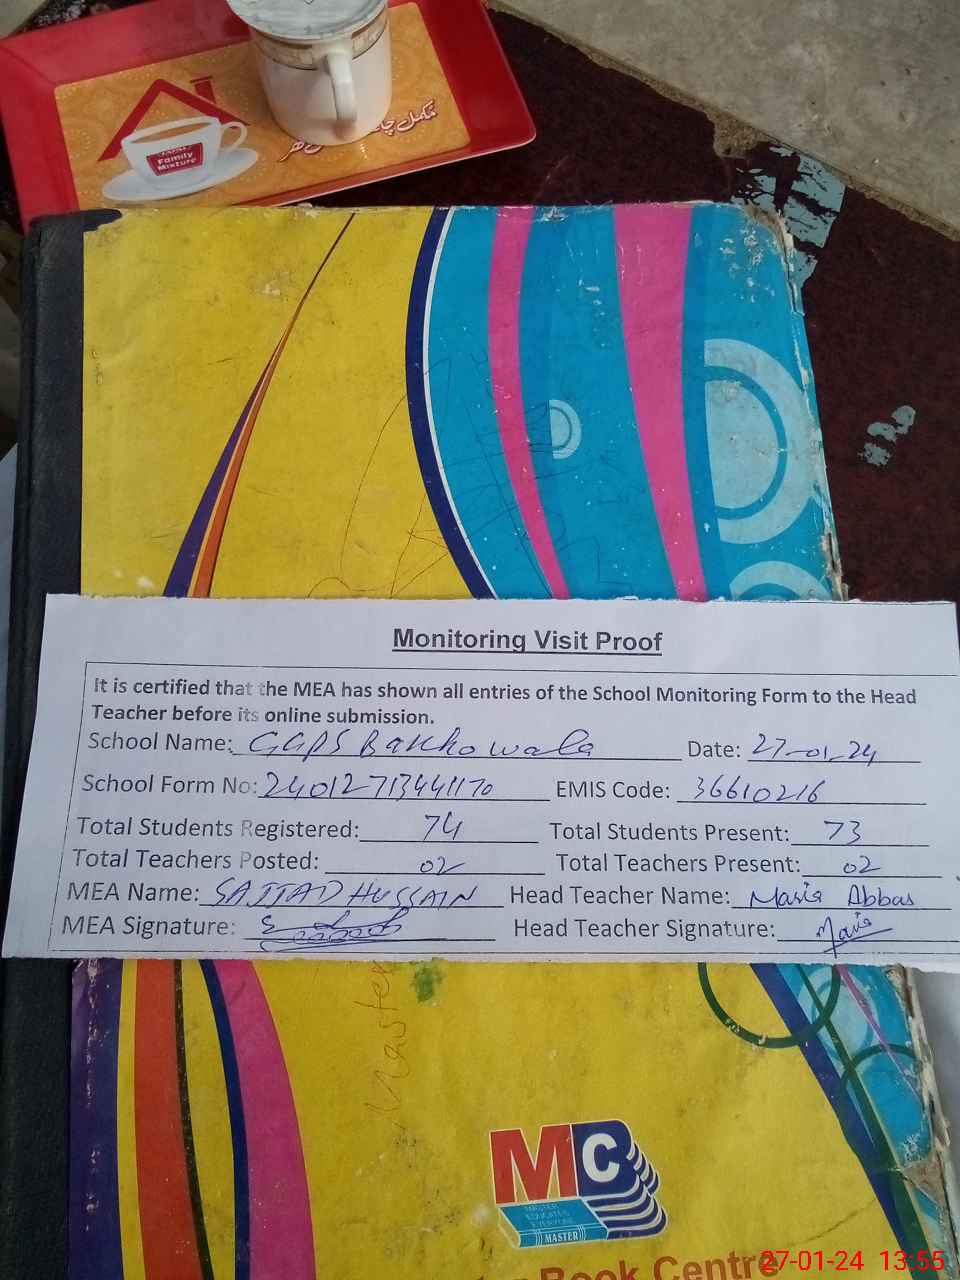 TAPAL
Family
Mixture
مکمل
Monitoring Visit Proof
It is certified that the MEA has shown all entries of the School Monitoring Form to the Head
Teacher before its online submission.
School Name: GGPS Bakhowala Date: 27-01-24
School Form No: 24012713441170 EMIS Code: 36610216
Total Students Registered: 74 Total Students Present: 73
Total Teachers Posted: 02 Total Teachers Present: 02
MEA Name: SAJJAD HUSSAIN Head Teacher Name: Maria Abbas
MEA Signature: Head Teacher Signature: Maria
Master
MC
MASTER
EDUCATES
EVERYONE
MASTER
Book Centre
27-01-24 13:55